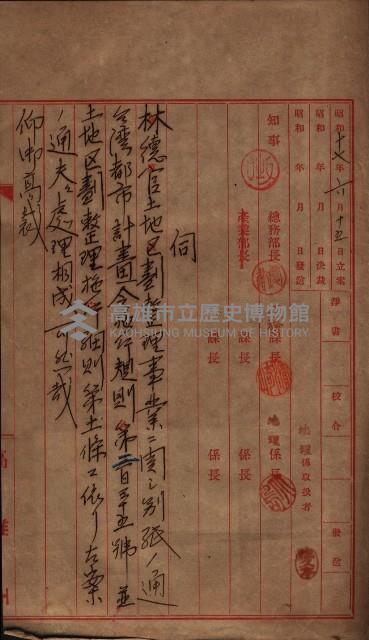 昭和十七年六月十五日立案
昭和 年 月 日決裁
昭和 年 月 日發送
淨書
校合
發送
地理係取扱者
知事
總務部長
產業部長
課長
課長
課長
地理係長
係長
係長
伺
林德官土地区劃整理事業ニ関シ別紙ノ通
台湾都市計畫令施行規則第二百三十五號並
土地区劃整理施行細則第十一條ニ依リ左案
ノ通夫々處理相成可然哉
仰御高裁
高雄市立歷史博物館
KAOHSIUNG MUSEUM OF HISTORY
高雄州